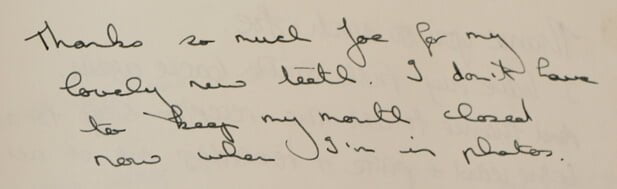 Thanks so much Joe for my
lovely new teeth. I don't have
to keep my mouth closed
now when I'm in photos.